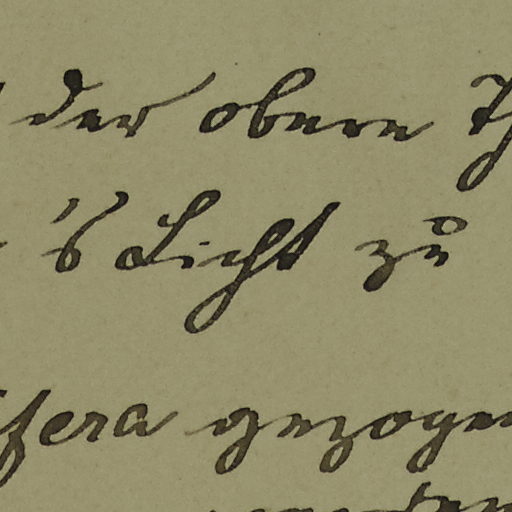 der obere
's Licht zu
gezogen